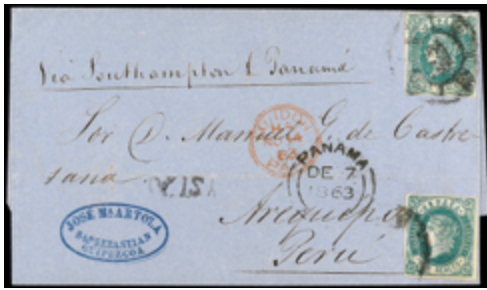 Via Southampton & Panamá
Por D. Manuel G. de Castre-
sana.
LONDON
PAID
PANAMA
DE 7
1863
Arequipa
Perú
JOSE Mª ARTOLA
Sn SEBASTIAN
GUIPUZCOA